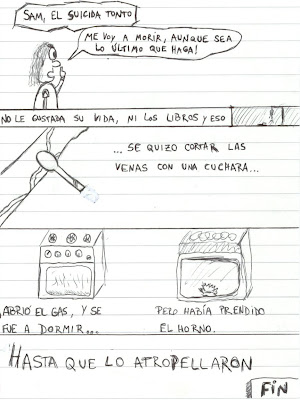 SAM, EL SUICIDA TONTO
ME VOY A MORIR, AUNQUE SEA
LO ÚLTIMO QUE HAGA!
NO LE GUSTABA SU VIDA, NI LOS LIBROS Y ESO
...SE QUIZO CORTAR LAS
VENAS CON UNA CUCHARA...
ABRIÓ EL GAS, Y SE
FUE A DORMIR...
PERO HABÍA PRENDIDO
EL HORNO.
HASTA QUE LO ATROPELLARON
FIN